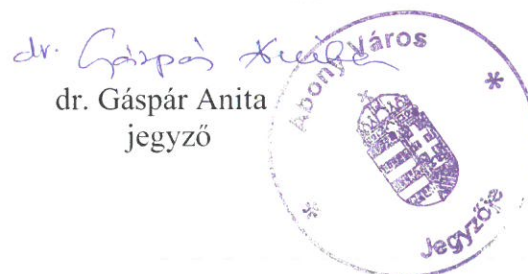 dr. Gáspár Anita
dr. Gáspár Anita
jegyző
Abony Város
* *
Jegyzője